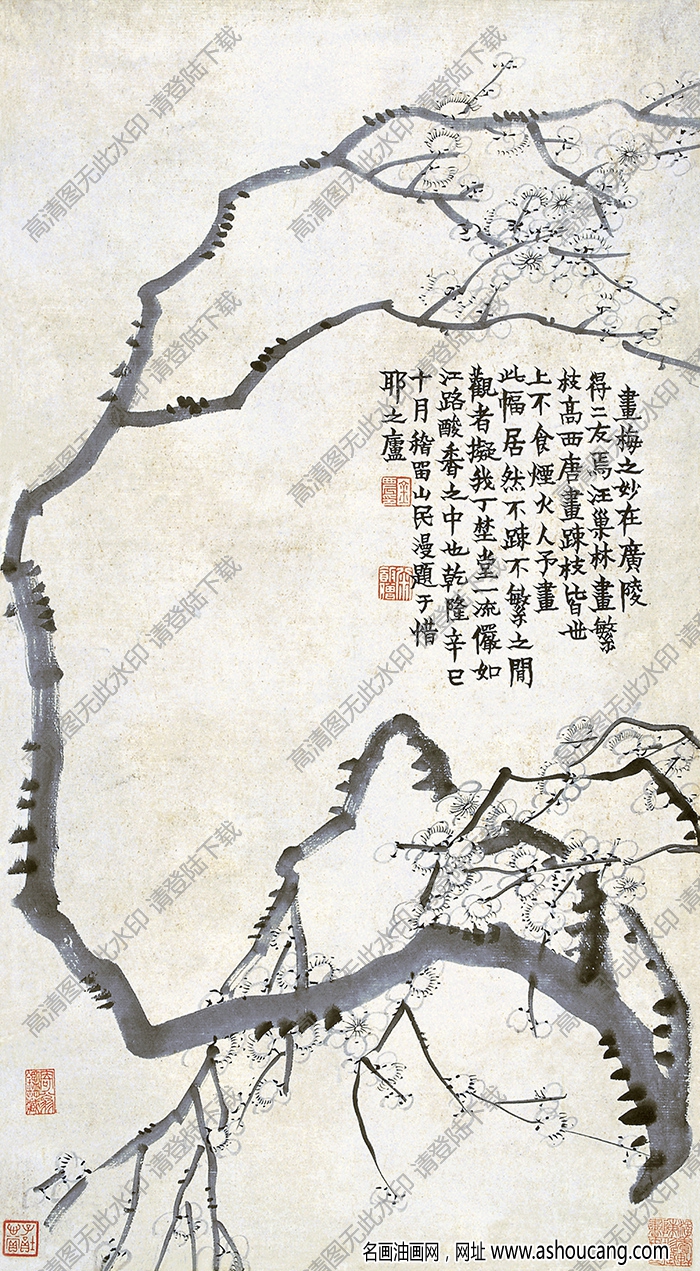 畫梅之妙在廣陵
得二友焉汪巢林畫繁
枝高西唐畫疎枝皆世
上不食煙火人予畫
此幅居然不疎不繁之間
觀者擬我丁埜堂一流儼如
江路酸香之中也乾隆辛巳
十月稽留山民漫題于惜
耶之廬
高清图无此水印 请登陆下载
名画油画网，网址 www.ashoucang.com